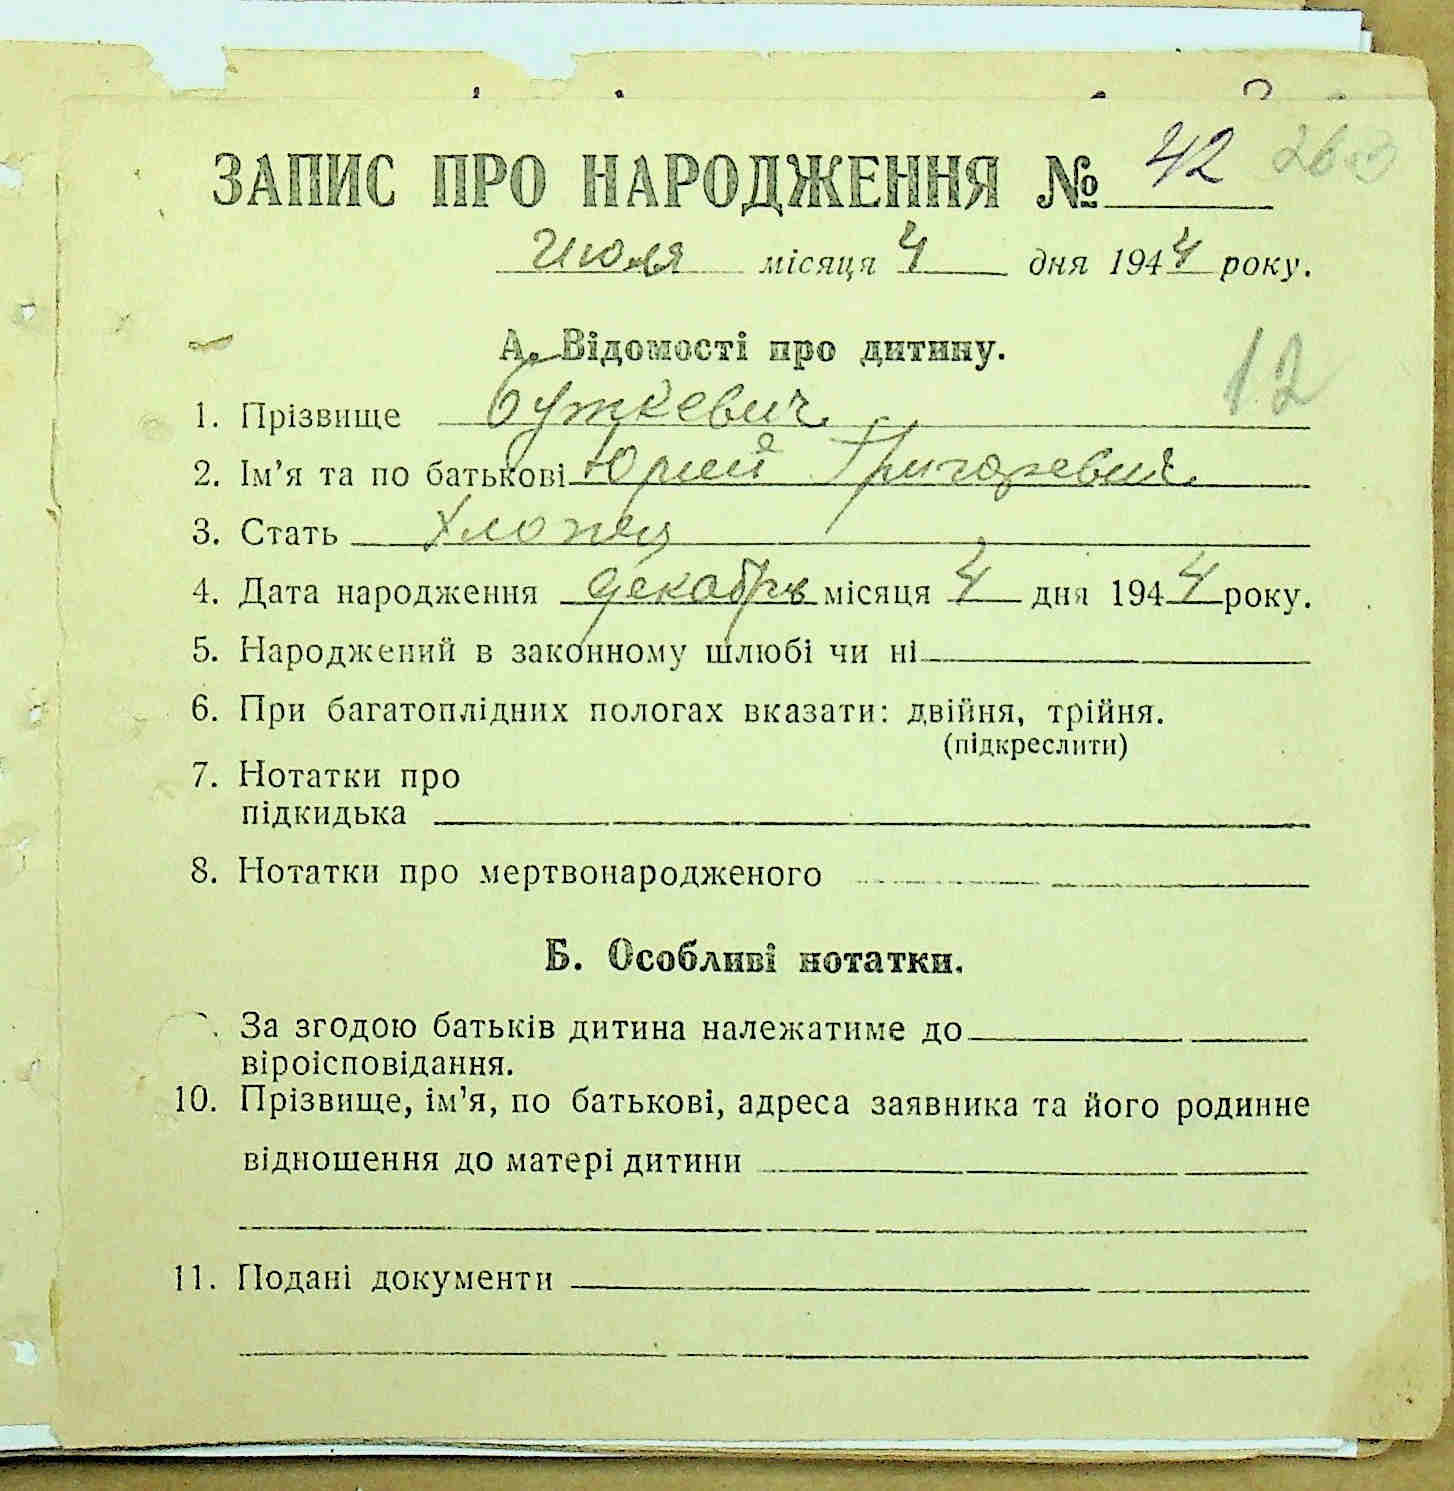 ЗАПИС ПРО НАРОДЖЕННЯ № 42 263
Июля місяця 4 дня 1944 року.
А. Відомості про дитину.
12
1. Прізвище Буткевич
2. Ім’я та по батькові Юрий Григорьевич
3. Стать Хлопец
4. Дата народження декабрь місяця 4 дня 1944 року.
5. Народжений в законному шлюбі чи ні
6. При багатоплідних пологах вказати: двійня, трійня.
(підкреслити)
7. Нотатки про
підкидька
8. Нотатки про мертвонародженого
Б. Особливі нотатки.
За згодою батьків дитина належатиме до
віроісповідання.
10. Прізвище, ім’я, по батькові, адреса заявника та його родинне
відношення до матері дитини
11. Подані документи